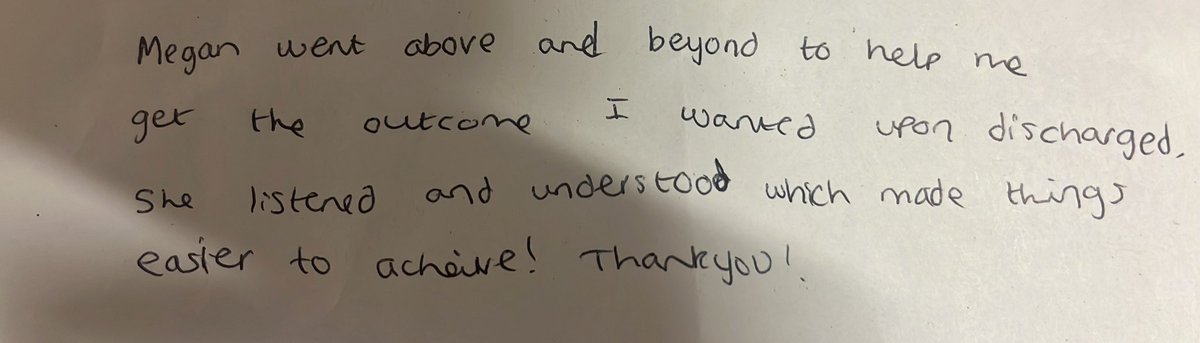 Megan went above and beyond to help me
get the outcome I wanted upon discharged.
She listened and understood which made things
easier to acheive! Thankyou!